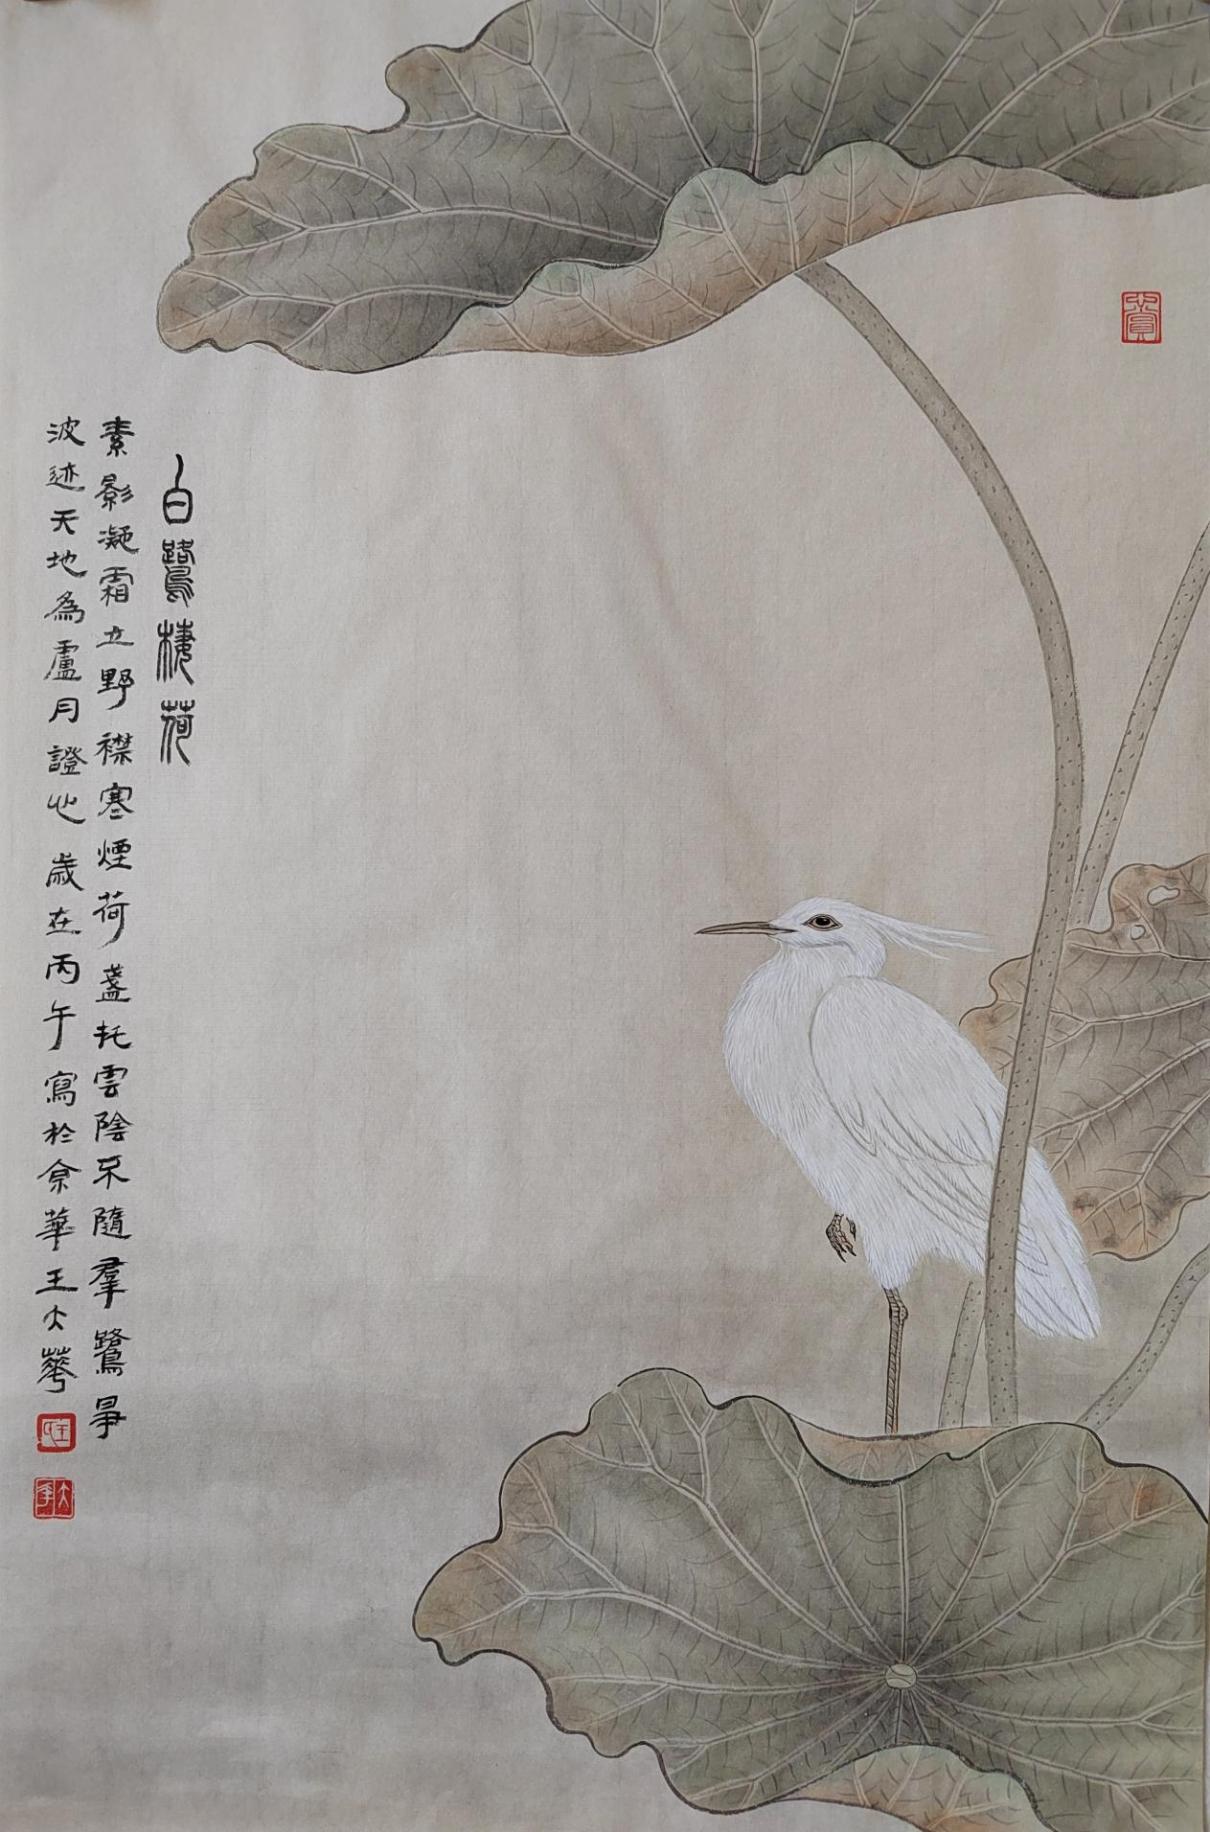 白鷺棲荷
素影凝霜立野襟寒煙荷蓋托雲陰不隨羣鷺爭
波迹天地為廬月證心 歲在丙午寫於京華王大華